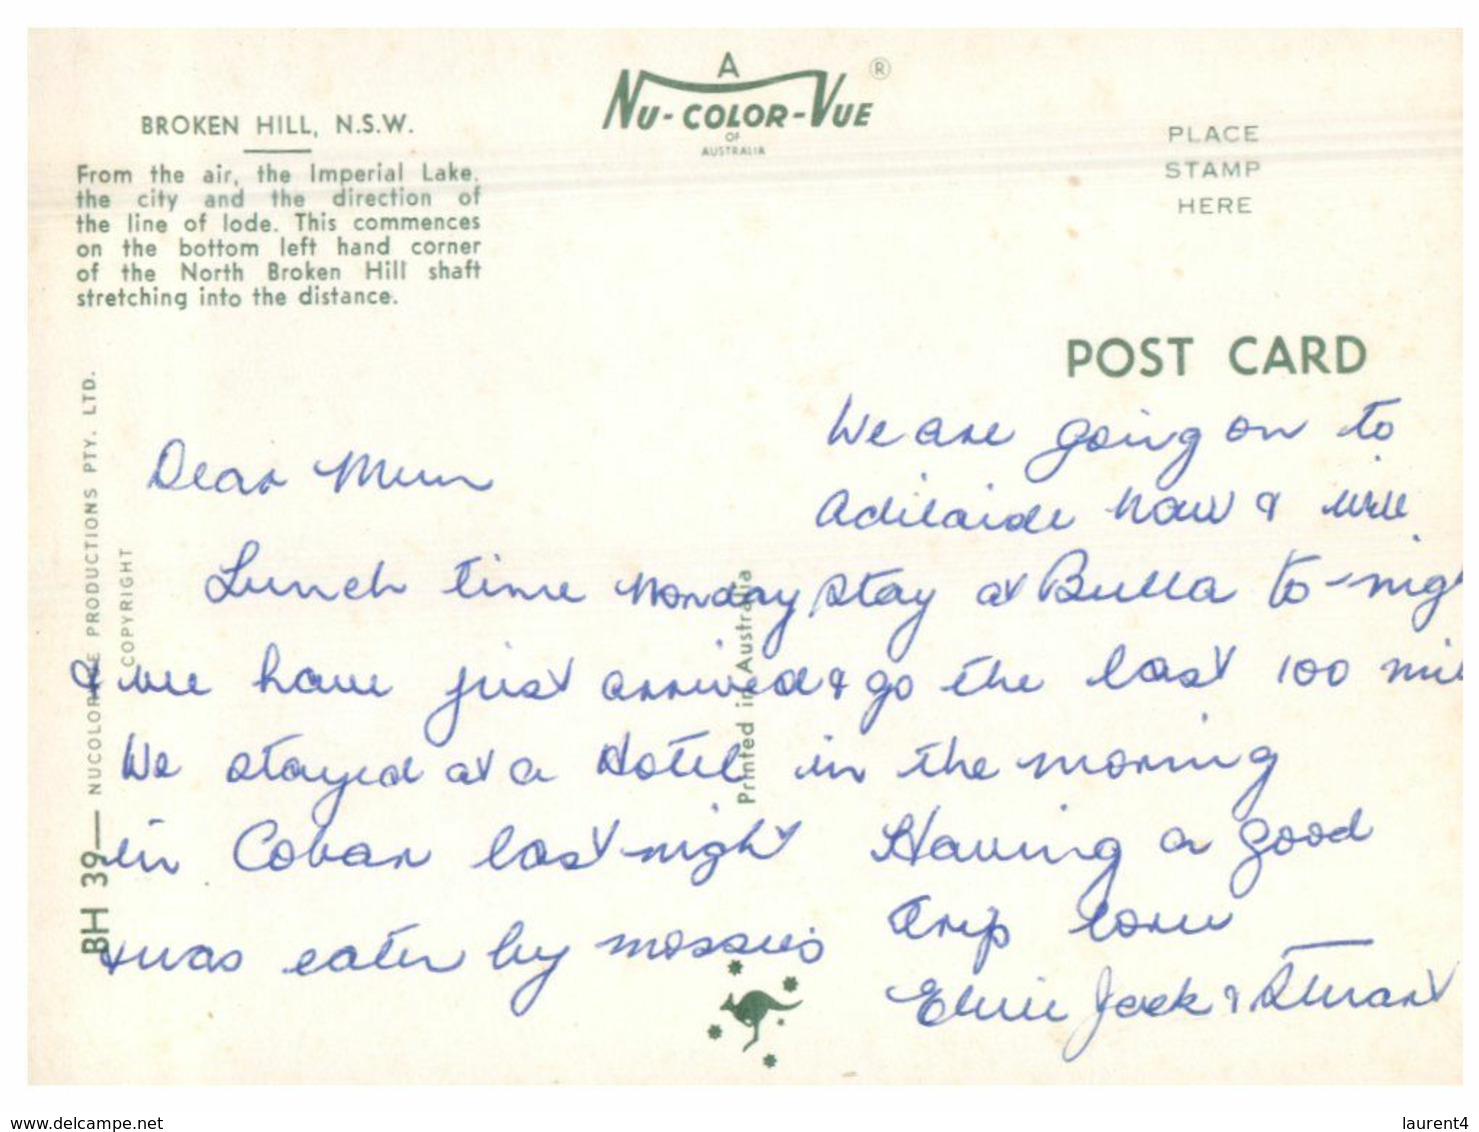 A
NU-COLOR-VUE ®
OF
AUSTRALIA
BROKEN HILL, N.S.W.
From the air, the Imperial Lake,
the city and the direction of
the line of lode. This commences
on the bottom left hand corner
of the North Broken Hill shaft
stretching into the distance.
PLACE
STAMP
HERE
POST CARD
BH 39— NUCOLORVUE PRODUCTIONS PTY. LTD.
COPYRIGHT
Printed in Australia
Dear Mum
Lunch time Monday
& we have just arrived
We stayed at a Hotel
in Cobar last night
& was eaten by mossies
We are going on to
Adilaide now & will
stay at Bulla to-nig
& go the last 100 mil
in the morning
Having a good
trip love
Elsie Jack & Stuart
www.delcampe.net
laurent4